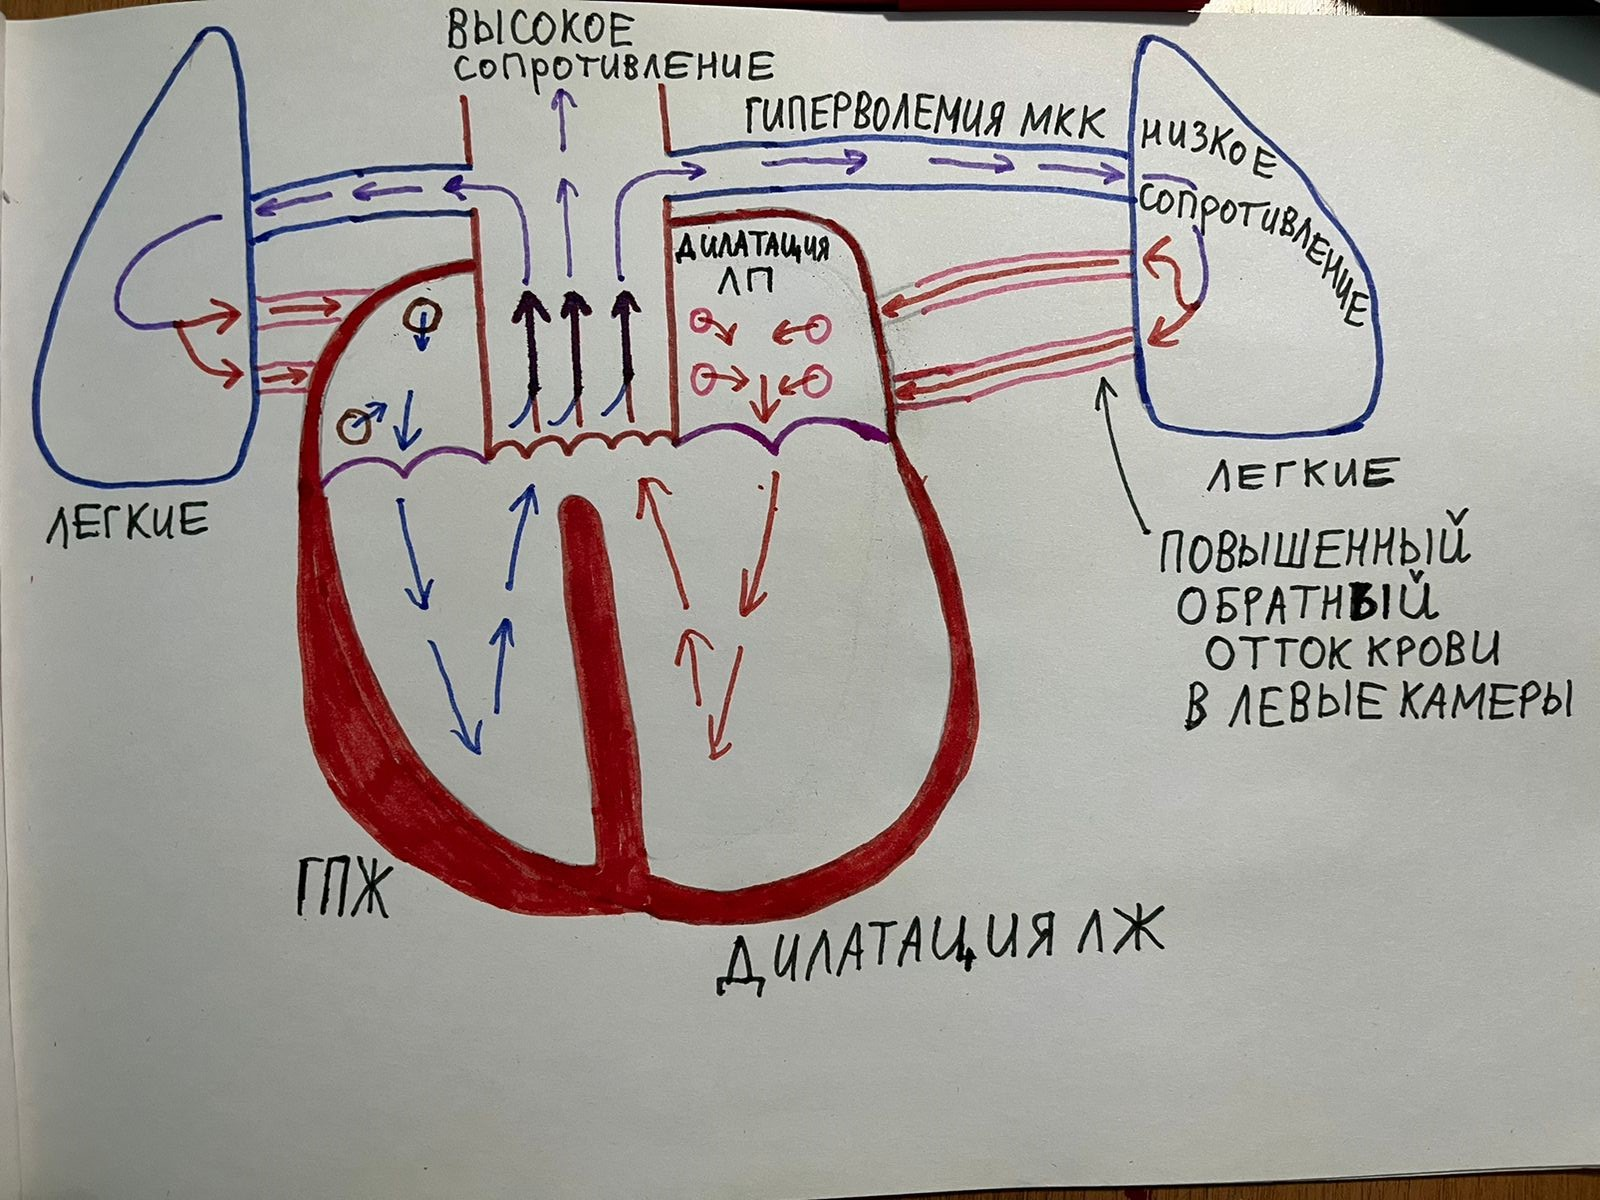 ВЫСОКОЕ
СОПРОТИВЛЕНИЕ
ГИПЕРВОЛЕМИЯ МКК
НИЗКОЕ
СОПРОТИВЛЕНИЕ
ДИЛАТАЦИЯ
ЛП
ЛЕГКИЕ
ЛЕГКИЕ
ПОВЫШЕННЫЙ
ОБРАТНЫЙ
ОТТОК КРОВИ
В ЛЕВЫЕ КАМЕРЫ
ГПЖ
ДИЛАТАЦИЯ ЛЖ